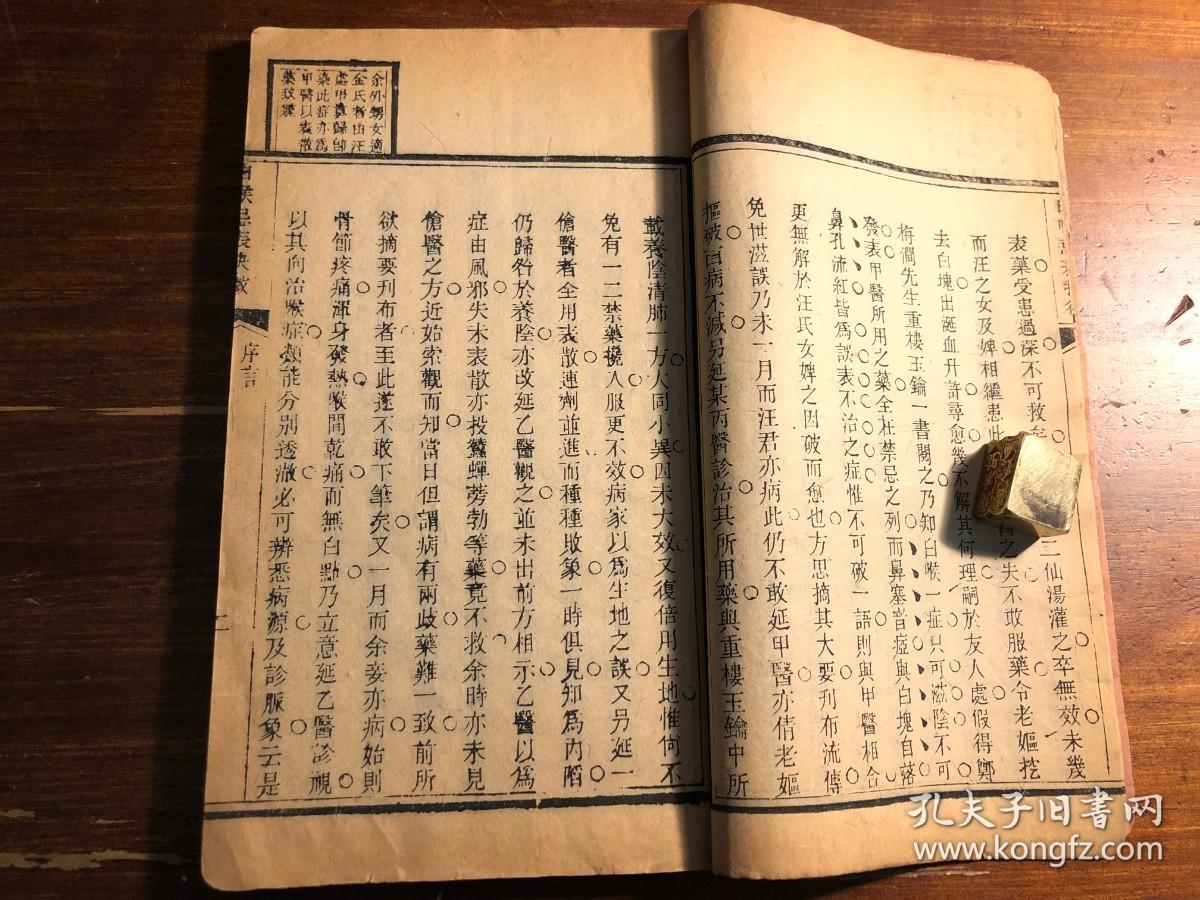 表藥受患過深不可救
三仙湯灌之卒無效未幾
而汪之女及婢相繼患此
之失不敢服藥令老嫗挖
去白塊出涎血升許尋愈幾不解其何理嗣於友人處假得鄭
梅澗先生重樓玉鑰一書閱之乃知白喉一症只可滋陰不可
發表甲醫所用之藥全在禁忌之列而鼻塞音瘂與白塊自落
鼻孔流紅皆為誤表不治之症惟不可破一語則與甲醫相合
更無解於汪氏女婢之因破而愈也方思摘其大要刋布流傳
免世滋誤乃未一月而汪君亦病此仍不敢延甲醫亦倩老嫗
摳破百病不減另延某丙醫診治其所用藥與重樓玉鑰中所
載養陰清肺一方大同小異因未大效又復倍用生地惟何不
免有一二禁藥攙入服更不效病家以為生地之誤又另延一
傖醫者全用表散連劑並進而種種敗象一時俱見知為內陷
仍歸咎於養陰亦改延乙醫觀之並未出前方相示乙醫以為
症由風邪失未表散亦投蠶蟬蒡勃等藥竟不救余時亦未見
傖醫之方近始索觀而知當日但謂病有兩歧藥難一致前所
欲摘要刋布者至此遂不敢下筆矣又一月而余妾亦病始則
骨節疼痛渾身發熱喉間乾痛而無白點乃立意延乙醫診視
以其向治喉症頗能分別透澈必可辨悉病源及診脈象云是
余外甥女適
金氏者由汪
處甲喪歸即
染此症亦為
甲醫以表散
藥致斃
白喉忌表抉微
序言
二
孔夫子旧書网
www.kongfz.com